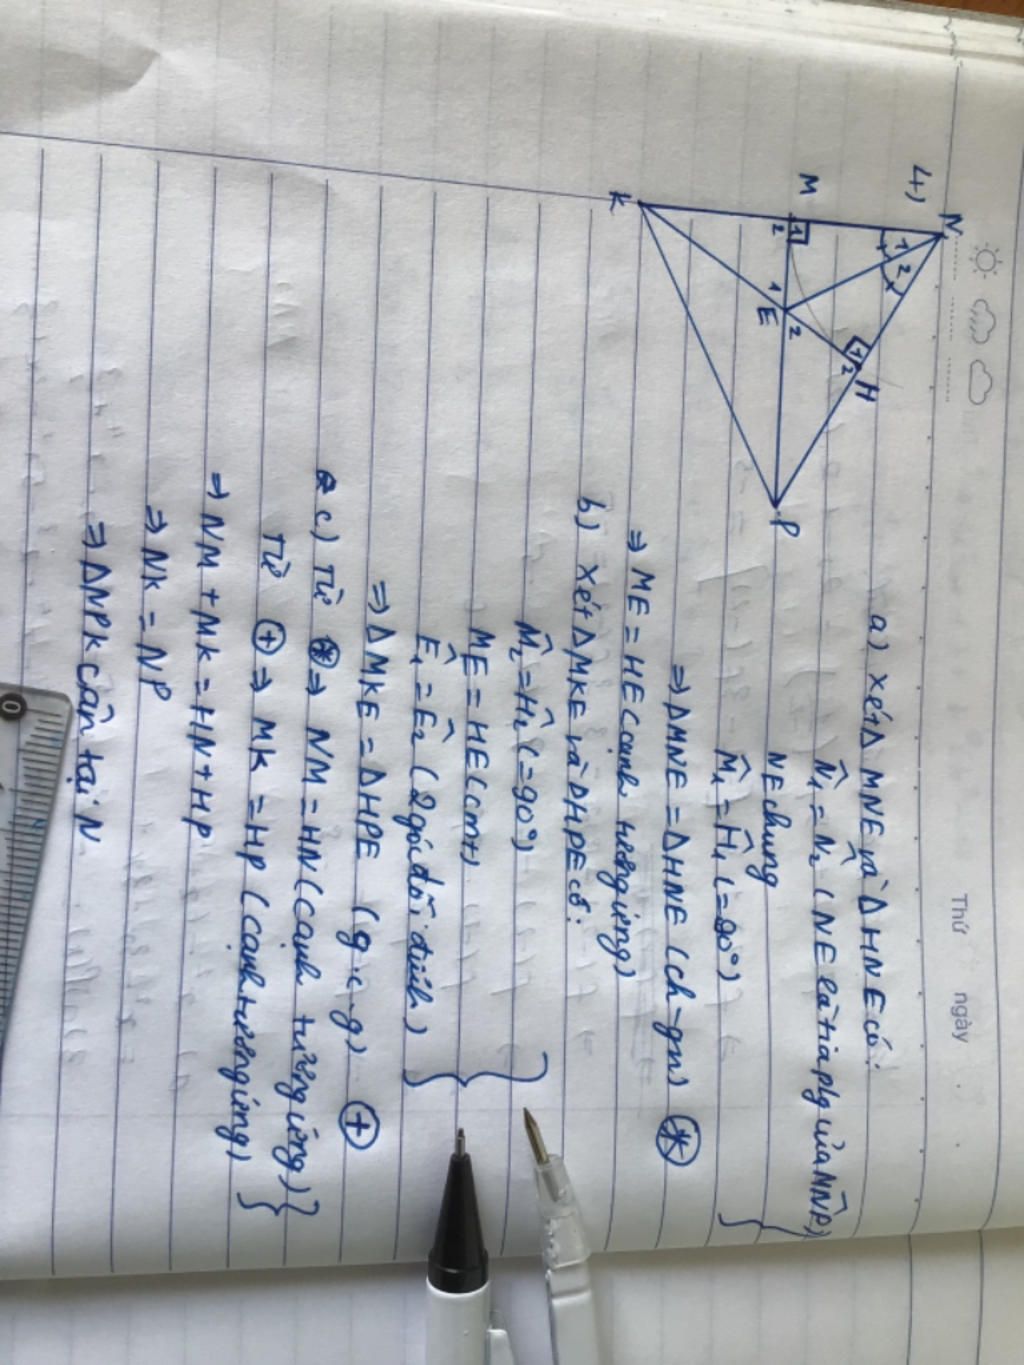 Thứ ngày
4,)
N
1 2
M
1
2
H
1 2
1
E
2
K
P
a) Xét Δ MNE và Δ HNE có:
N̂₁ = N̂₂ (NE là tia plg của MN̂P)
NE chung
M̂₁ = Ĥ₁ (=90°)
⇒ ΔMNE = ΔHNE (ch-gn) ⊛
⇒ ME = HE (cạnh tương ứng)
b) Xét ΔMKE và ΔHPE có:
M̂₂ = Ĥ₂ (=90°)
ME = HE (cmt)
Ê₁ = Ê₂ (2 góc đối đỉnh)
⇒ ΔMKE = ΔHPE (g.c-g) ⊕
c) Từ ⊛ ⇒ NM = HN (cạnh tương ứng)
Từ ⊕ ⇒ MK = HP (cạnh tương ứng)
⇒ NM + MK = HN + HP
⇒ NK = NP
⇒ ΔNPK cân tại N
0